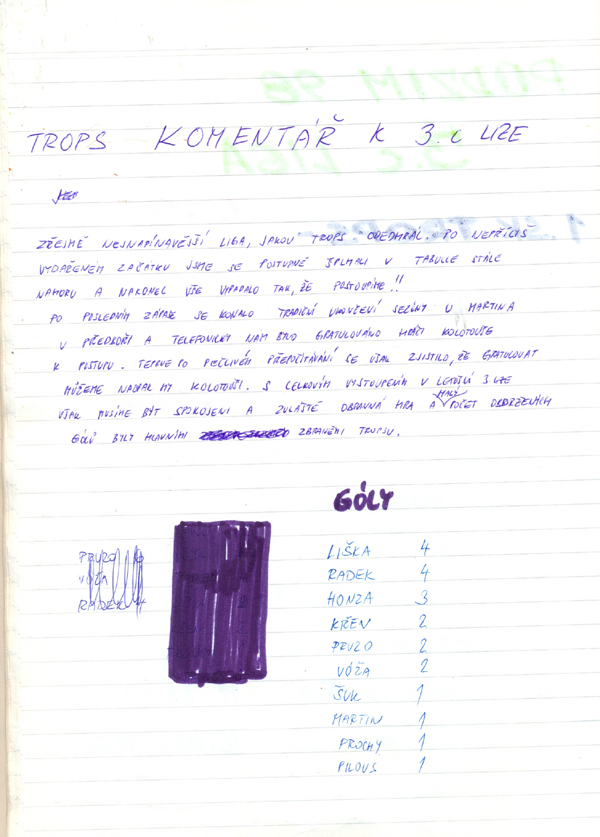 TROPS KOMENTÁŘ K 3.C LIZE
ZŘEJMĚ NEJNAPÍNAVĚJŠÍ LIGA, JAKOU TROPS ODEHRÁL. PO NEPŘÍLIŠ
VYDAŘENÉM ZAČÁTKU JSME SE POSTUPNĚ ŠPLHALI V TABULCE STÁLE
NAHORU A NAKONEC VŠE VYPADALO TAK, ŽE POSTOUPÍME!!
PO POSLEDNÍM ZÁPASE SE KONALO TRADIČNÍ UKONČENÍ SEZÓNY U MARTINA
V PŘEDBOŘI A TELEFONICKY NÁM BYLO GRATULOVÁNO HRÁČI KOLOTOČE
K POSTUPU. TEPRVE PO PEČLIVÉM PŘEPOČÍTÁVÁNÍ SE VŠAK ZJISTILO, ŽE GRATULOVAT
MŮŽEME NAOPAK MY KOLOTOČI. S CELKOVÝM VYSTOUPENÍM V LETOŠNÍ 3 LIZE
VŠAK MUSÍME BÝT SPOKOJENI A ZVLÁŠTĚ OBRANNÁ HRA A MALÝ POČET OBDRŽENÝCH
GÓLŮ BYLY HLAVNÍMI ZBRANĚMI TROPSU.
GÓLY
LIŠKA 4
RADEK 4
HONZA 3
KŘEN 2
PRUZO 2
VÓŽA 2
ŠUK 1
MARTIN 1
PROCHY 1
PILOUS 1
PRUZO
VÓŽA
RADEK 4